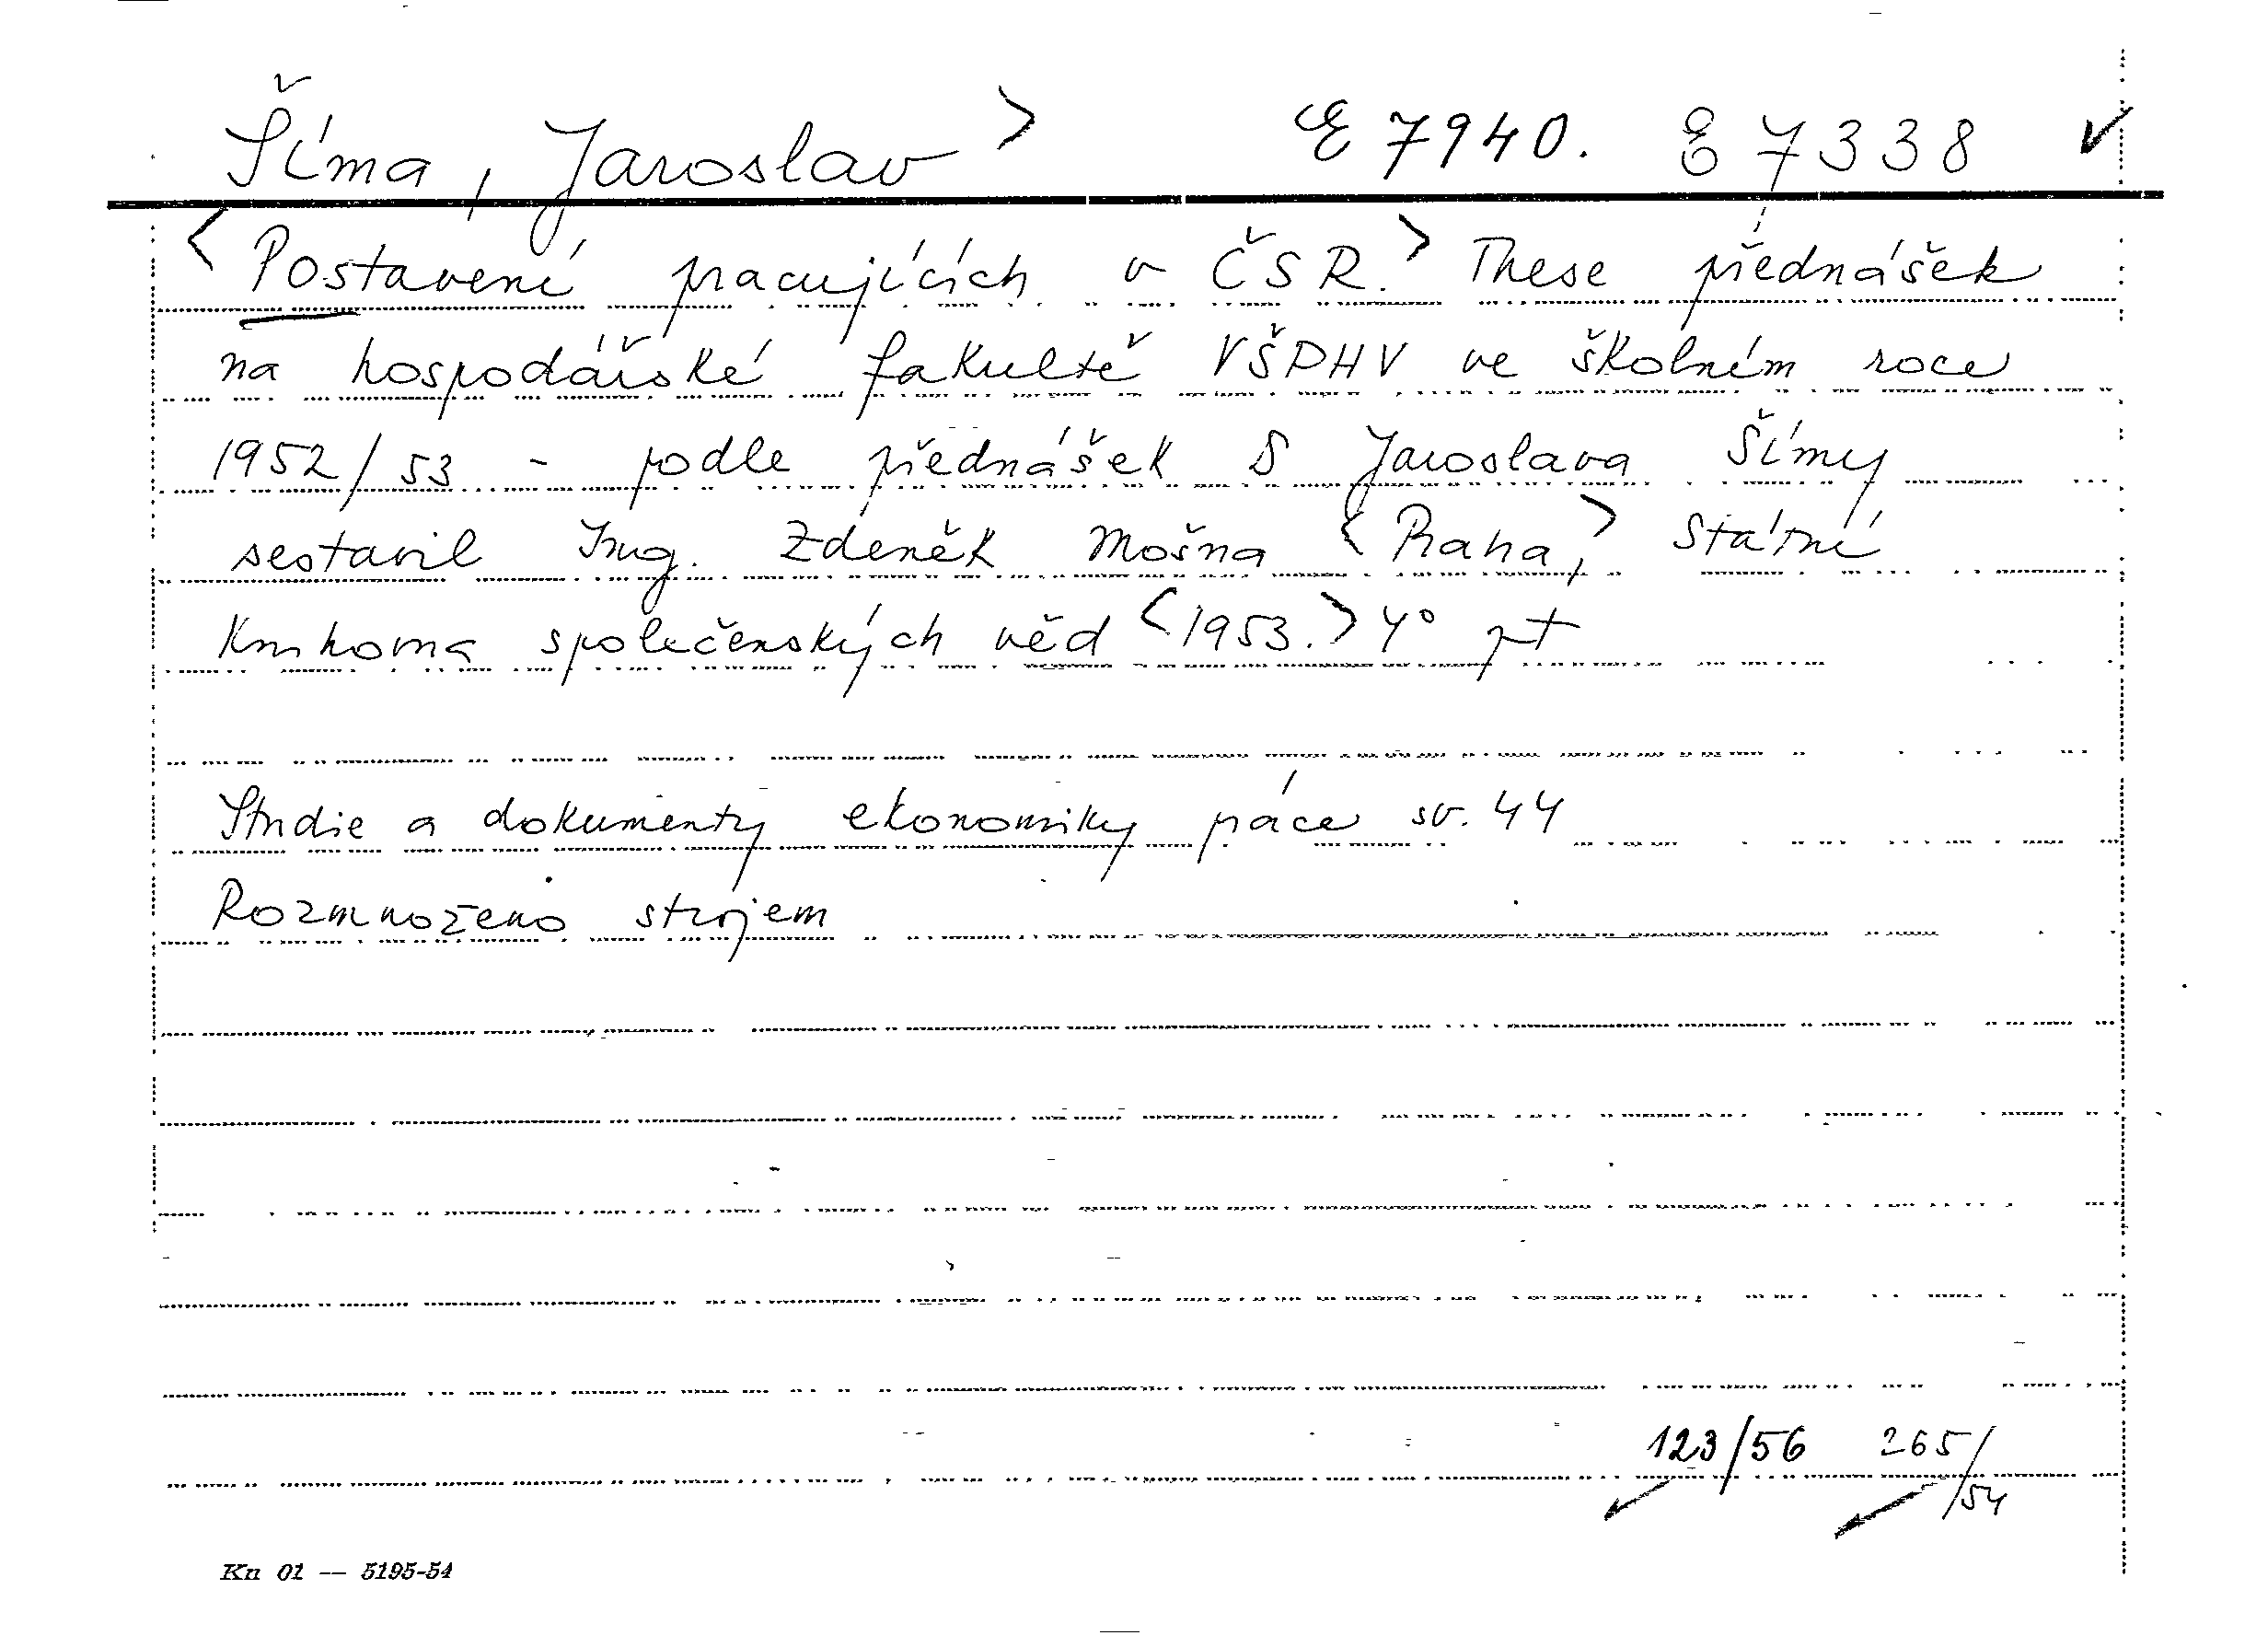 Šíma, Jaroslav > E 7940. E 7338 ✓
<Postavení pracujících v ČSR.> These přednášek
na hospodářské fakultě VŠPHV ve školním roce
1952/53 - podle přednášek S Jaroslava Šímy
sestavil Ing. Zdeněk Mošna <Praha,> Státní
Knihovna společenských věd <1953.> 4°
Studie a dokumenty ekonomiky práce sv. 44
Rozmnoženo strojem
123/56 265/54
Kn 01 — 5195-54